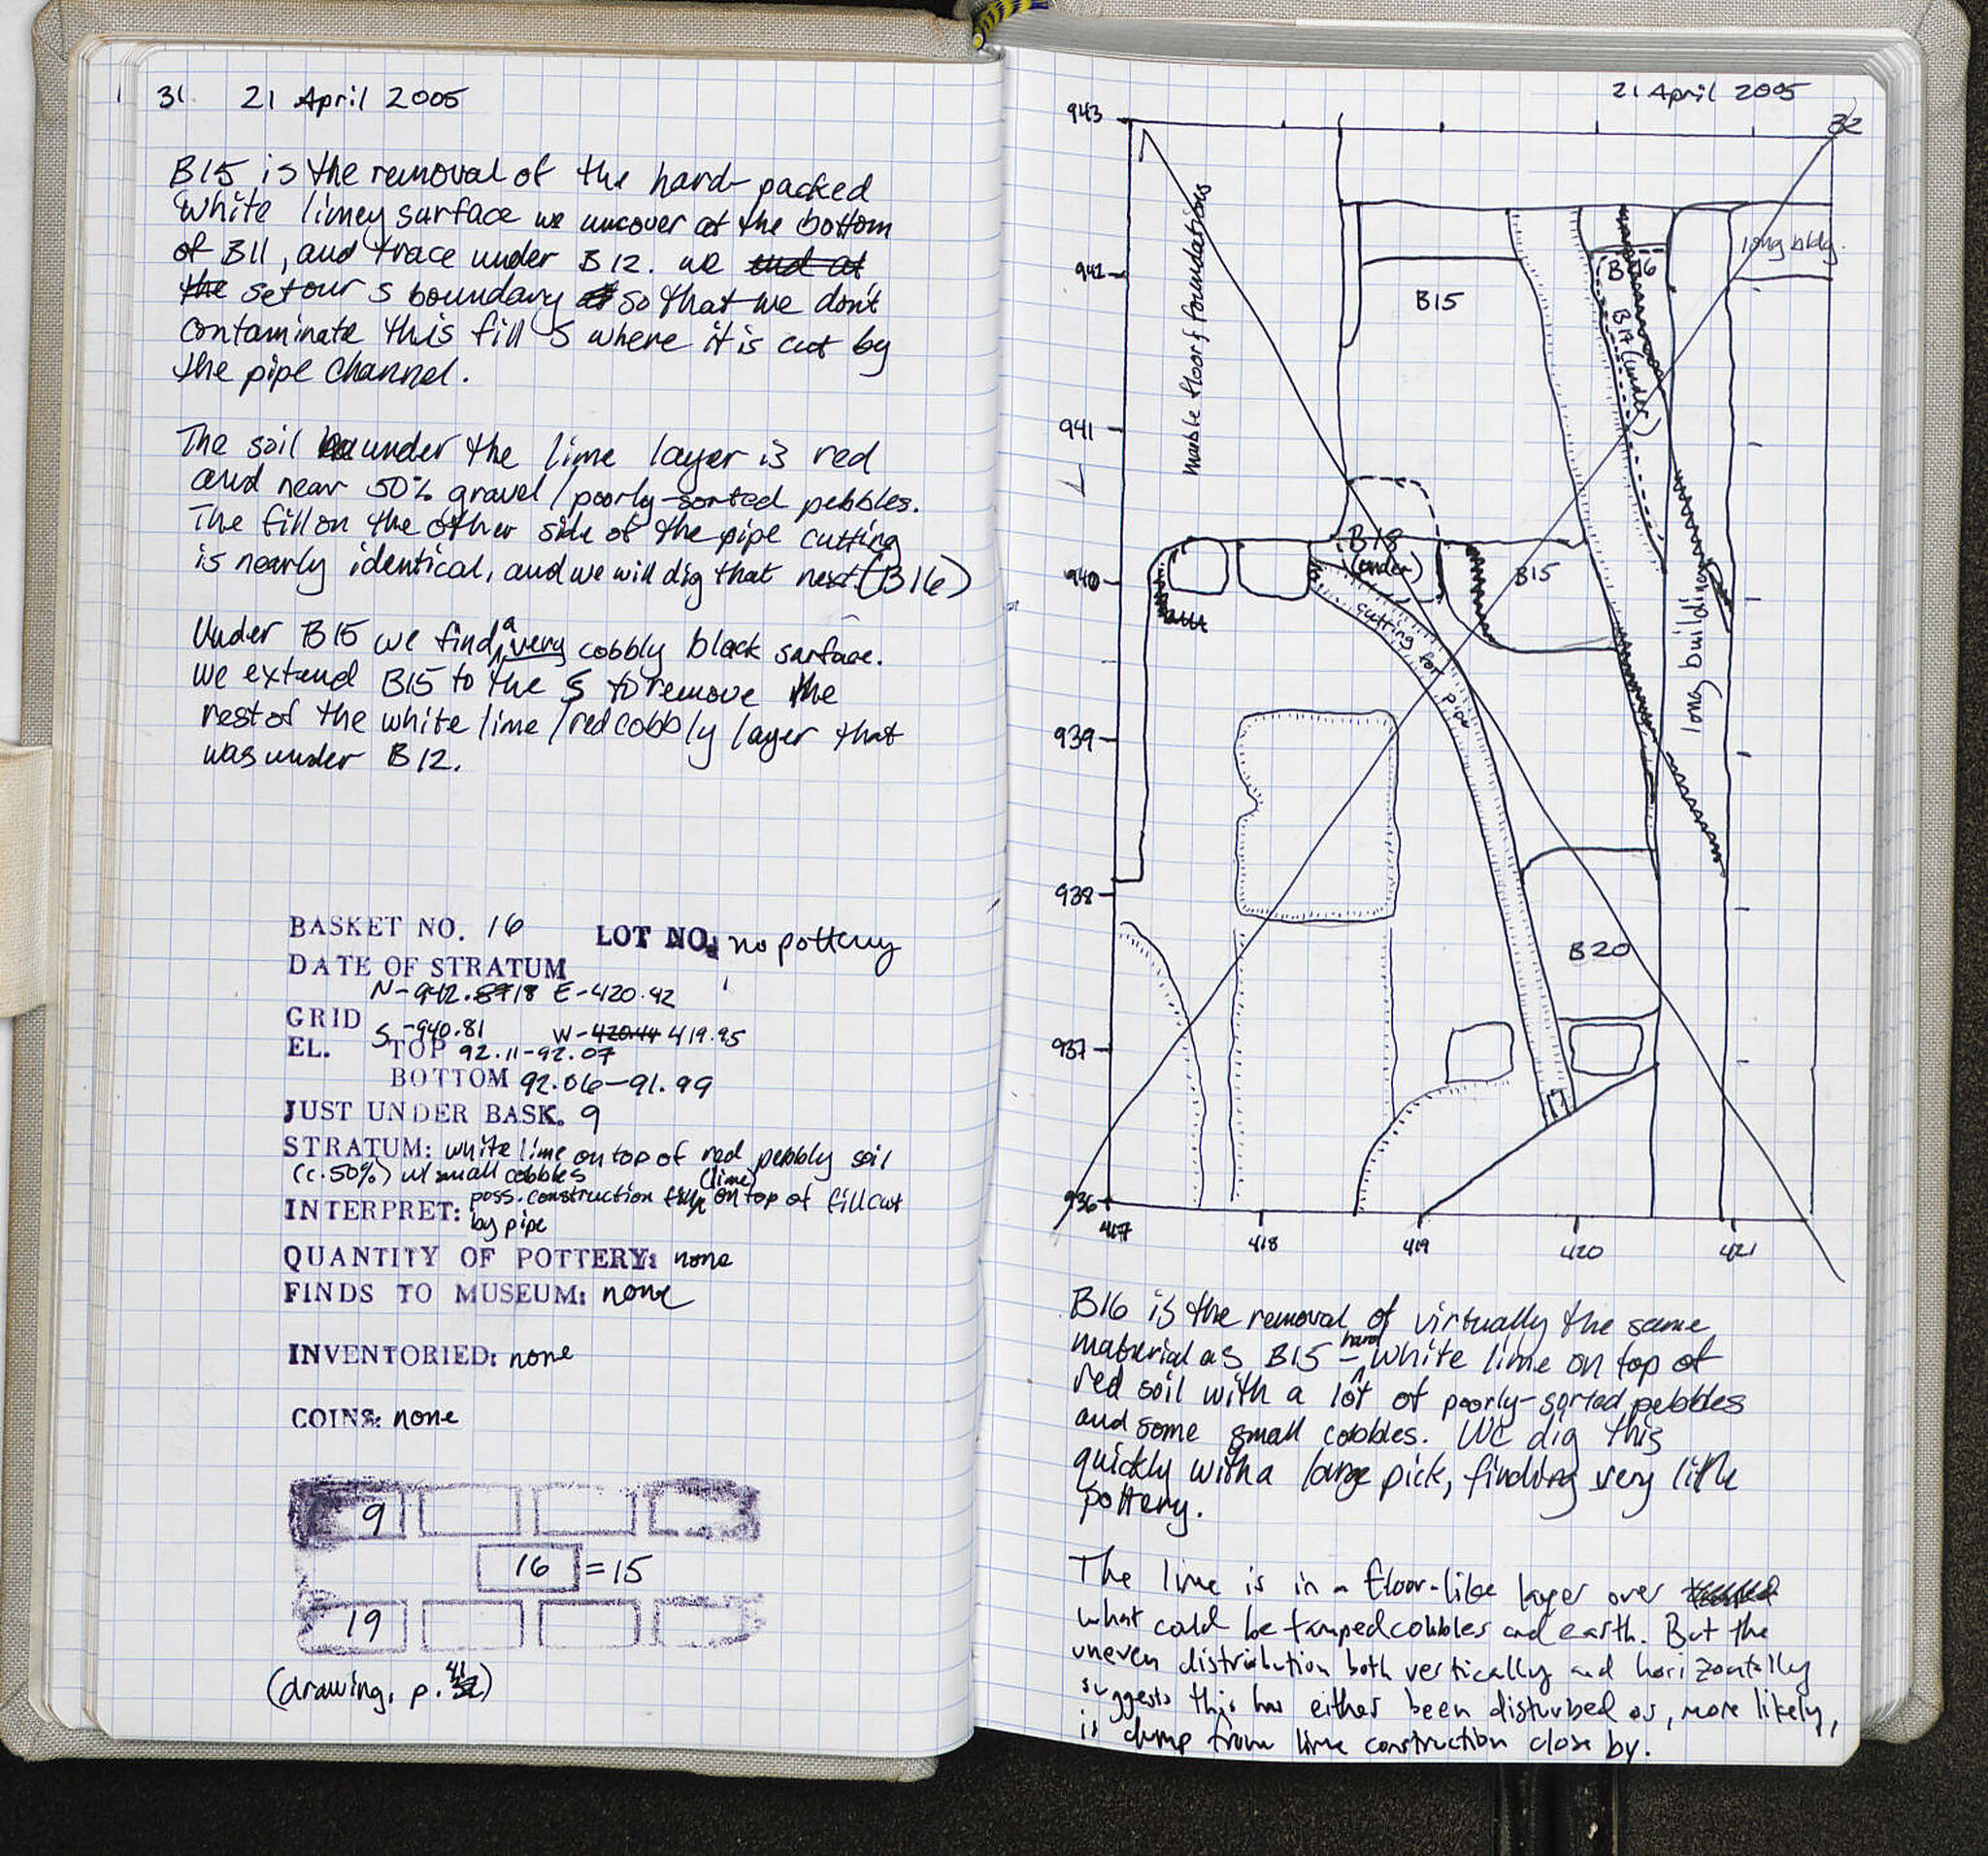 31 21 April 2005
B15 is the removal of the hard-packed
white limey surface we uncover at the bottom
of B11, and trace under B12. we end at
the set our S boundary so that we don't
contaminate this fill S where it is cut by
the pipe channel.
The soil under the lime layer is red
and near 50% gravel/poorly-sorted pebbles.
The fill on the other side of the pipe cutting
is nearly identical, and we will dig that next (B16)
Under B15 we find a very cobbly black surface.
We extend B15 to the S to remove the
rest of the white lime/red cobbly layer that
was under B12.
BASKET NO. 16 LOT NO. no pottery
DATE OF STRATUM
N-942.18 E-420.42
GRID S-940.81 W-420.44 419.95
EL. TOP 92.11-92.07
BOTTOM 92.06-91.99
JUST UNDER BASK. 9
STRATUM: white lime on top of red pebbly soil
(c.50%) w/ small cobbles
INTERPRET: poss. construction (lime) on top of fill cut
by pipe
QUANTITY OF POTTERY: none
FINDS TO MUSEUM: none
INVENTORIED: none
COINS: none
9
16 =15
19
(drawing, p. 41)
21 April 2005
32
943
942
941
940
939
938
937
936
417
418
419
420
421
marble floor foundations
B15
B16
B17 (under)
long bldg.
B18
(under)
B15
cutting for pipe
long building
B20
B16 is the removal of virtually the same
material as B15 - hard white lime on top of
red soil with a lot of poorly-sorted pebbles
and some small cobbles. We dig this
quickly with a large pick, finding very little
pottery.
The lime is in a floor-like layer over
what could be tamped cobbles and earth. But the
uneven distribution both vertically and horizontally
suggests this has either been disturbed or, more likely,
is dump from lime construction close by.